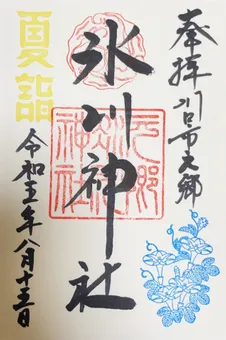 奉拝 川口市元郷
氷川神社
元郷
氷川
神社
夏詣
令和五年八月十五日